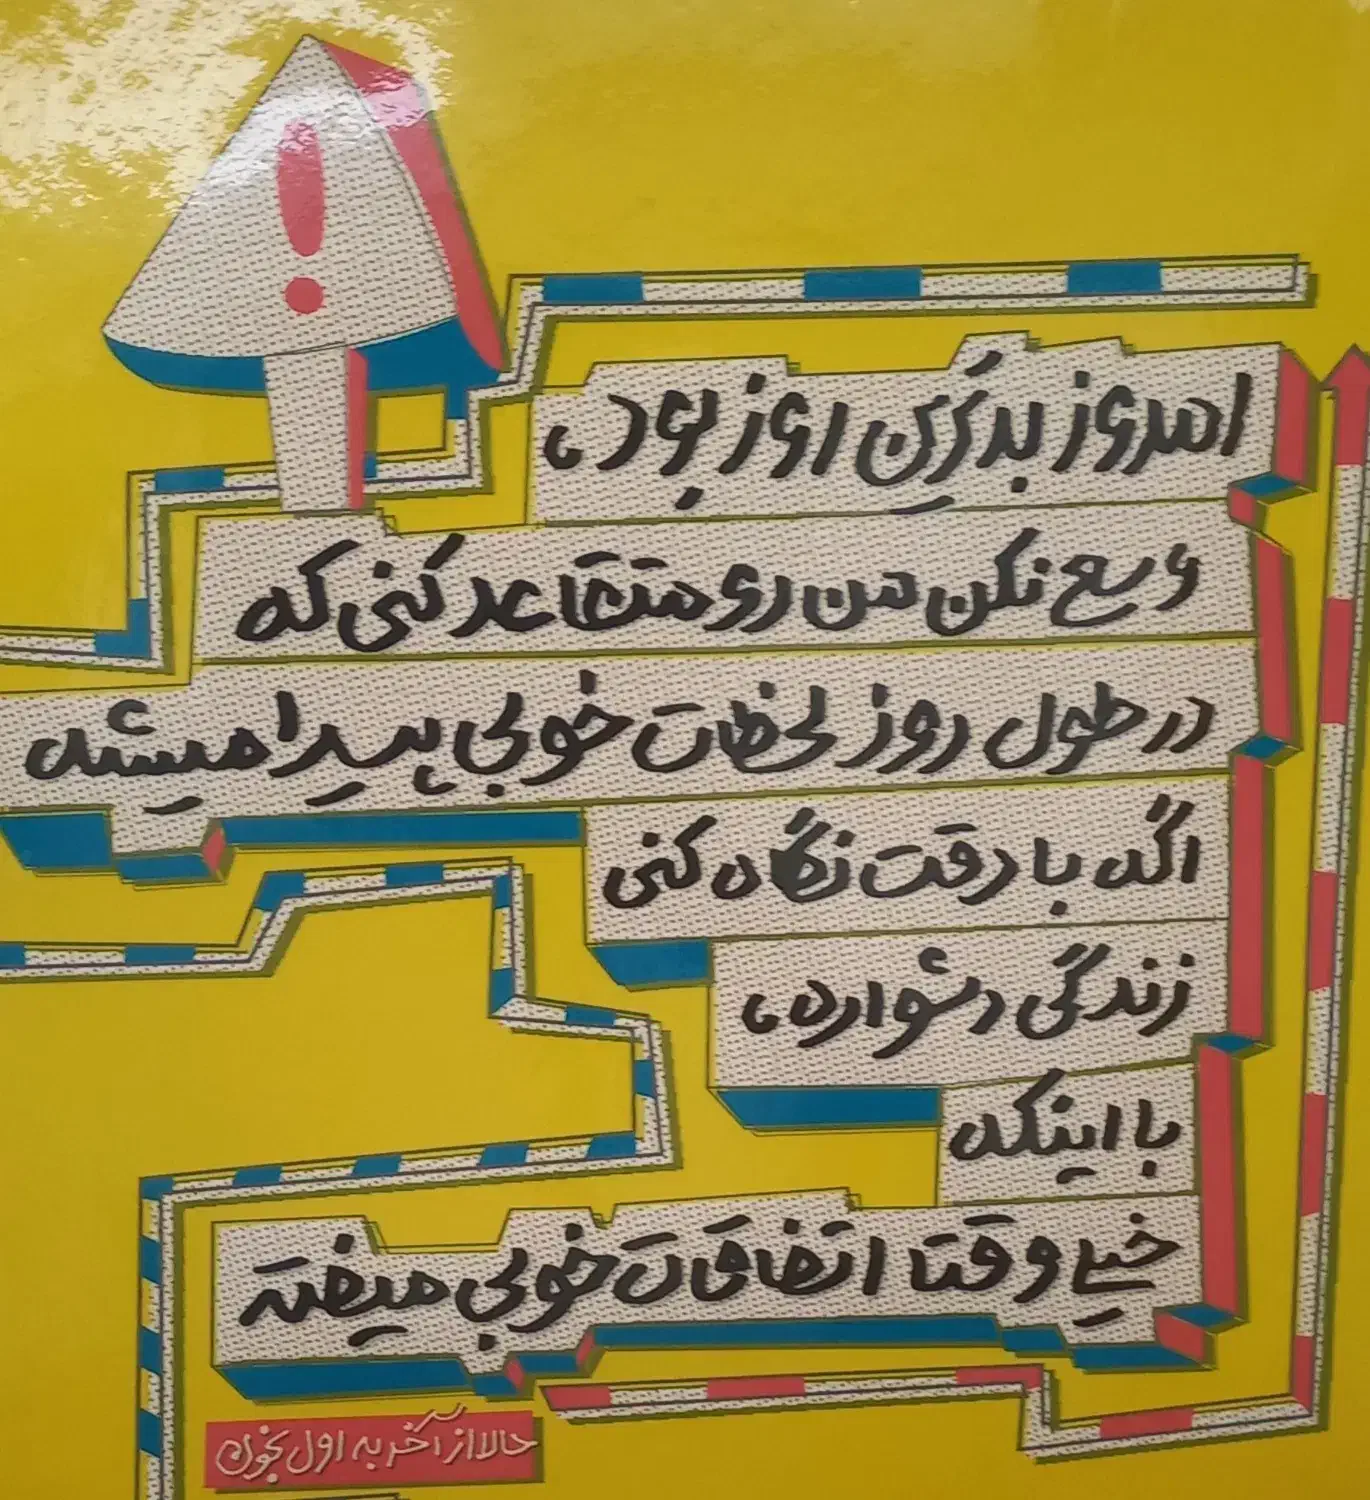 امروز بدترین روز بود،
و سع نکن من رو متقاعد کنی که
در طول روز لحظات خوبی پیدا میشه
اگه با دقت نگاه کنی
زندگی دشواره،
با اینکه
خیلی وقتا اتفاقات خوبی میفته
حالا از آخر به اول بخون